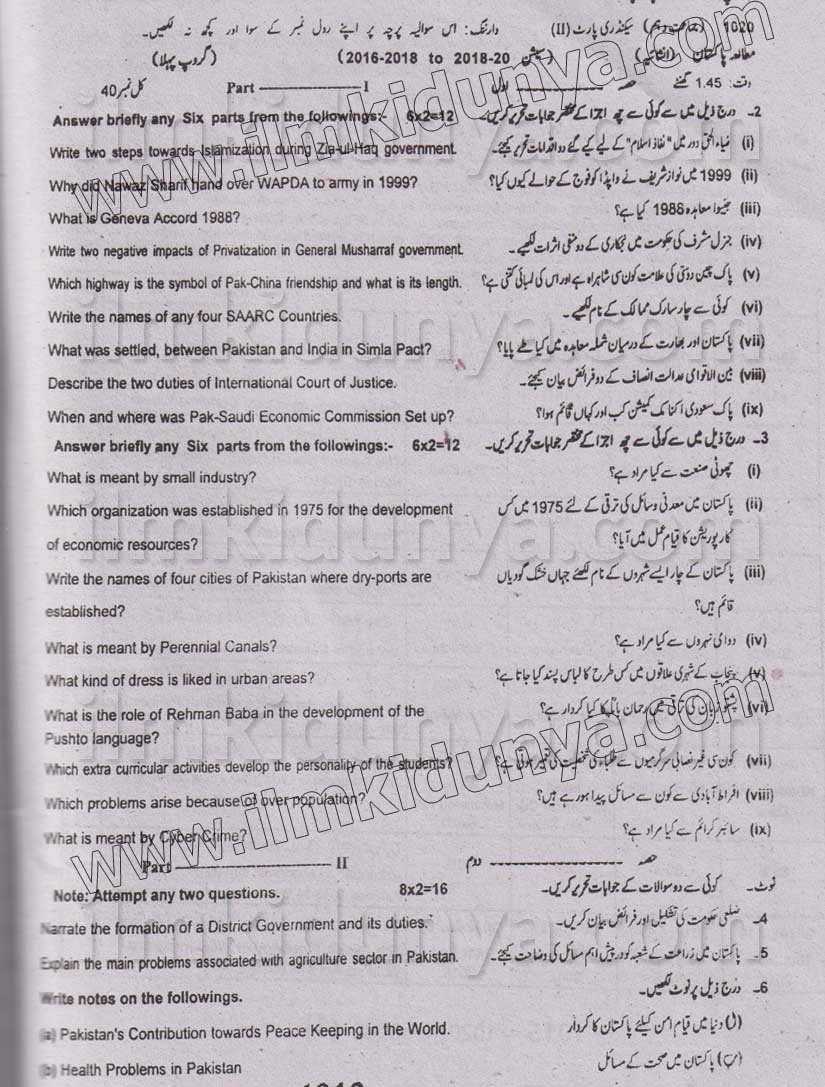 1020 (جماعت دہم) سیکنڈری پارٹ (II) وارننگ: اس سوالیہ پرچہ پر اپنے رول نمبر کے سوا اور کچھ نہ لکھیں۔
مطالعہ پاکستان (انشائیہ) (سیشن 2016-2018 to 2018-20) (گروپ پہلا)
وقت: 1.45 گھنٹے حصہ اول Part I کل نمبر 40
Answer briefly any Six parts from the followings:- 6x2=12 2۔ درج ذیل میں سے کوئی سے چھ اجزا کے مختصر جوابات تحریر کریں۔
Write two steps towards Islamization during Zia-ul-Haq government. (i) ضیاء الحق دور میں "نفاذ اسلام" کے لیے کیے گئے دو اقدامات تحریر کیجئے۔
Why did Nawaz Sharif hand over WAPDA to army in 1999? (ii) 1999 میں نواز شریف نے واپڈا کو فوج کے حوالے کیوں کیا؟
What is Geneva Accord 1988? (iii) جنیوا معاہدہ 1988 کیا ہے؟
Write two negative impacts of Privatization in General Musharraf government. (iv) جنرل مشرف کی حکومت میں نجکاری کے دو منفی اثرات لکھیے۔
Which highway is the symbol of Pak-China friendship and what is its length. (v) پاک چین دوستی کی علامت کون سی شاہراہ ہے اور اس کی لمبائی کتنی ہے؟
Write the names of any four SAARC Countries. (vi) کوئی سے چار سارک ممالک کے نام لکھیے۔
What was settled, between Pakistan and India in Simla Pact? (vii) پاکستان اور بھارت کے درمیان شملہ معاہدہ میں کیا طے پایا؟
Describe the two duties of International Court of Justice. (viii) بین الاقوامی عدالت انصاف کے دو فرائض بیان کیجئے۔
When and where was Pak-Saudi Economic Commission Set up? (ix) پاک سعودی اکنامک کمیشن کب اور کہاں قائم ہوا؟
Answer briefly any Six parts from the followings:- 6x2=12 3۔ درج ذیل میں سے کوئی سے چھ اجزا کے مختصر جوابات تحریر کریں۔
What is meant by small industry? (i) چھوٹی صنعت سے کیا مراد ہے؟
Which organization was established in 1975 for the development (ii) پاکستان میں معدنی وسائل کی ترقی کے لئے 1975 میں کس
of economic resources? کارپوریشن کا قیام عمل میں آیا؟
Write the names of four cities of Pakistan where dry-ports are (iii) پاکستان کے چار ایسے شہروں کے نام لکھئے جہاں خشک گودیاں
established? قائم ہیں؟
What is meant by Perennial Canals? (iv) دوامی نہروں سے کیا مراد ہے؟
What kind of dress is liked in urban areas? (v) پنجاب کے شہری علاقوں میں کس طرح کا لباس پسند کیا جاتا ہے؟
What is the role of Rehman Baba in the development of the (vi) پشتو زبان کی ترقی میں رحمان بابا کا کیا کردار ہے؟
Pushto language?
Which extra curricular activities develop the personality of the students? (vii) کون سی غیر نصابی سرگرمیوں سے طلباء کی شخصیت کی تعمیر ہوتی ہے؟
Which problems arise because of over population? (viii) افراط آبادی سے کون سے مسائل پیدا ہو رہے ہیں؟
What is meant by Cyber Crime? (ix) سائبر کرائم سے کیا مراد ہے؟
Part II حصہ دوم
Note: Attempt any two questions. 8x2=16 نوٹ۔ کوئی سے دو سوالات کے جوابات تحریر کریں۔
Narrate the formation of a District Government and its duties. 4۔ ضلعی حکومت کی تشکیل اور فرائض بیان کریں۔
Explain the main problems associated with agriculture sector in Pakistan. 5۔ پاکستان میں زراعت کے شعبہ کو درپیش اہم مسائل کی وضاحت کیجئے۔
Write notes on the followings. 6۔ درج ذیل پر نوٹ لکھیں۔
a) Pakistan's Contribution towards Peace Keeping in the World. (ا) دنیا میں قیام امن کیلئے پاکستان کا کردار
b) Health Problems in Pakistan (ب) پاکستان میں صحت کے مسائل
www.ilmkidunya.com
ilmkidunya.com